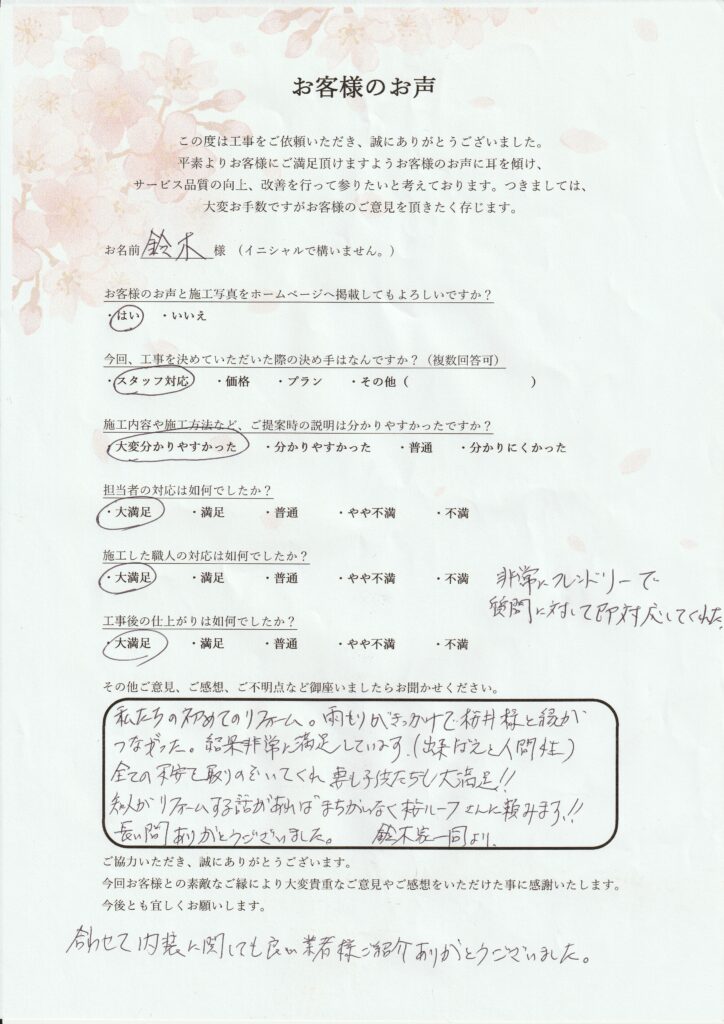 お客様のお声
この度は工事をご依頼いただき、誠にありがとうございました。
平素よりお客様にご満足頂けますようお客様のお声に耳を傾け、
サービス品質の向上、改善を行って参りたいと考えております。つきましては、
大変お手数ですがお客様のご意見を頂きたく存じます。
お名前 鈴木 様 （イニシャルで構いません。）
お客様のお声と施工写真をホームページへ掲載してもよろしいですか？
・はい ・いいえ
今回、工事を決めていただいた際の決め手はなんですか？（複数回答可）
・スタッフ対応 ・価格 ・プラン ・その他（ ）
施工内容や施工方法など、ご提案時の説明は分かりやすかったですか？
・大変分かりやすかった ・分かりやすかった ・普通 ・分かりにくかった
担当者の対応は如何でしたか？
・大満足 ・満足 ・普通 ・やや不満 ・不満
施工した職人の対応は如何でしたか？
・大満足 ・満足 ・普通 ・やや不満 ・不満
非常にフレンドリーで
質問に対して即対応してくれた
工事後の仕上がりは如何でしたか？
・大満足 ・満足 ・普通 ・やや不満 ・不満
その他ご意見、ご感想、ご不明点など御座いましたらお聞かせください。
私たちの初めてのリフォーム。雨もりがきっかけで桜井様と縁が
つながった。結果非常に満足しています。(出来ばえと人間性)
全ての不安を取りのぞいてくれ妻も子供たちも大満足!!
知人がリフォームする話があればまちがいなく桜ルーフさんに頼みます!!
長い間ありがとうございました。 鈴木家一同より。
ご協力いただき、誠にありがとうございます。
今回お客様との素敵なご縁により大変貴重なご意見やご感想をいただけた事に感謝いたします。
今後とも宜しくお願いします。
合わせて内装に関しても良い業者様ご紹介ありがとうございました。